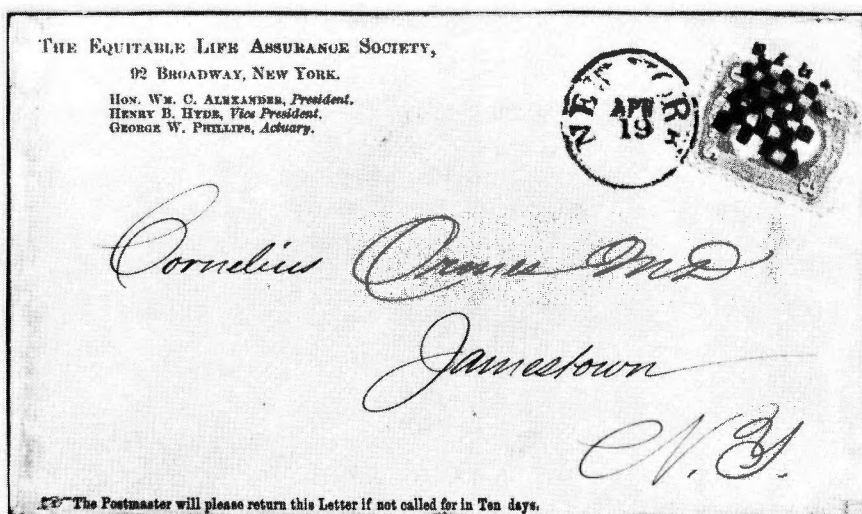 THE EQUITABLE LIFE ASSURANCE SOCIETY,
92 BROADWAY, NEW YORK.
HON. WM. C. ALEXANDER, President.
HENRY B. HYDE, Vice President.
GEORGE W. PHILLIPS, Actuary.
NEW YORK
APR
19
Cornelius Ormes MD
Jamestown
N. Y.
The Postmaster will please return this Letter if not called for in Ten days.